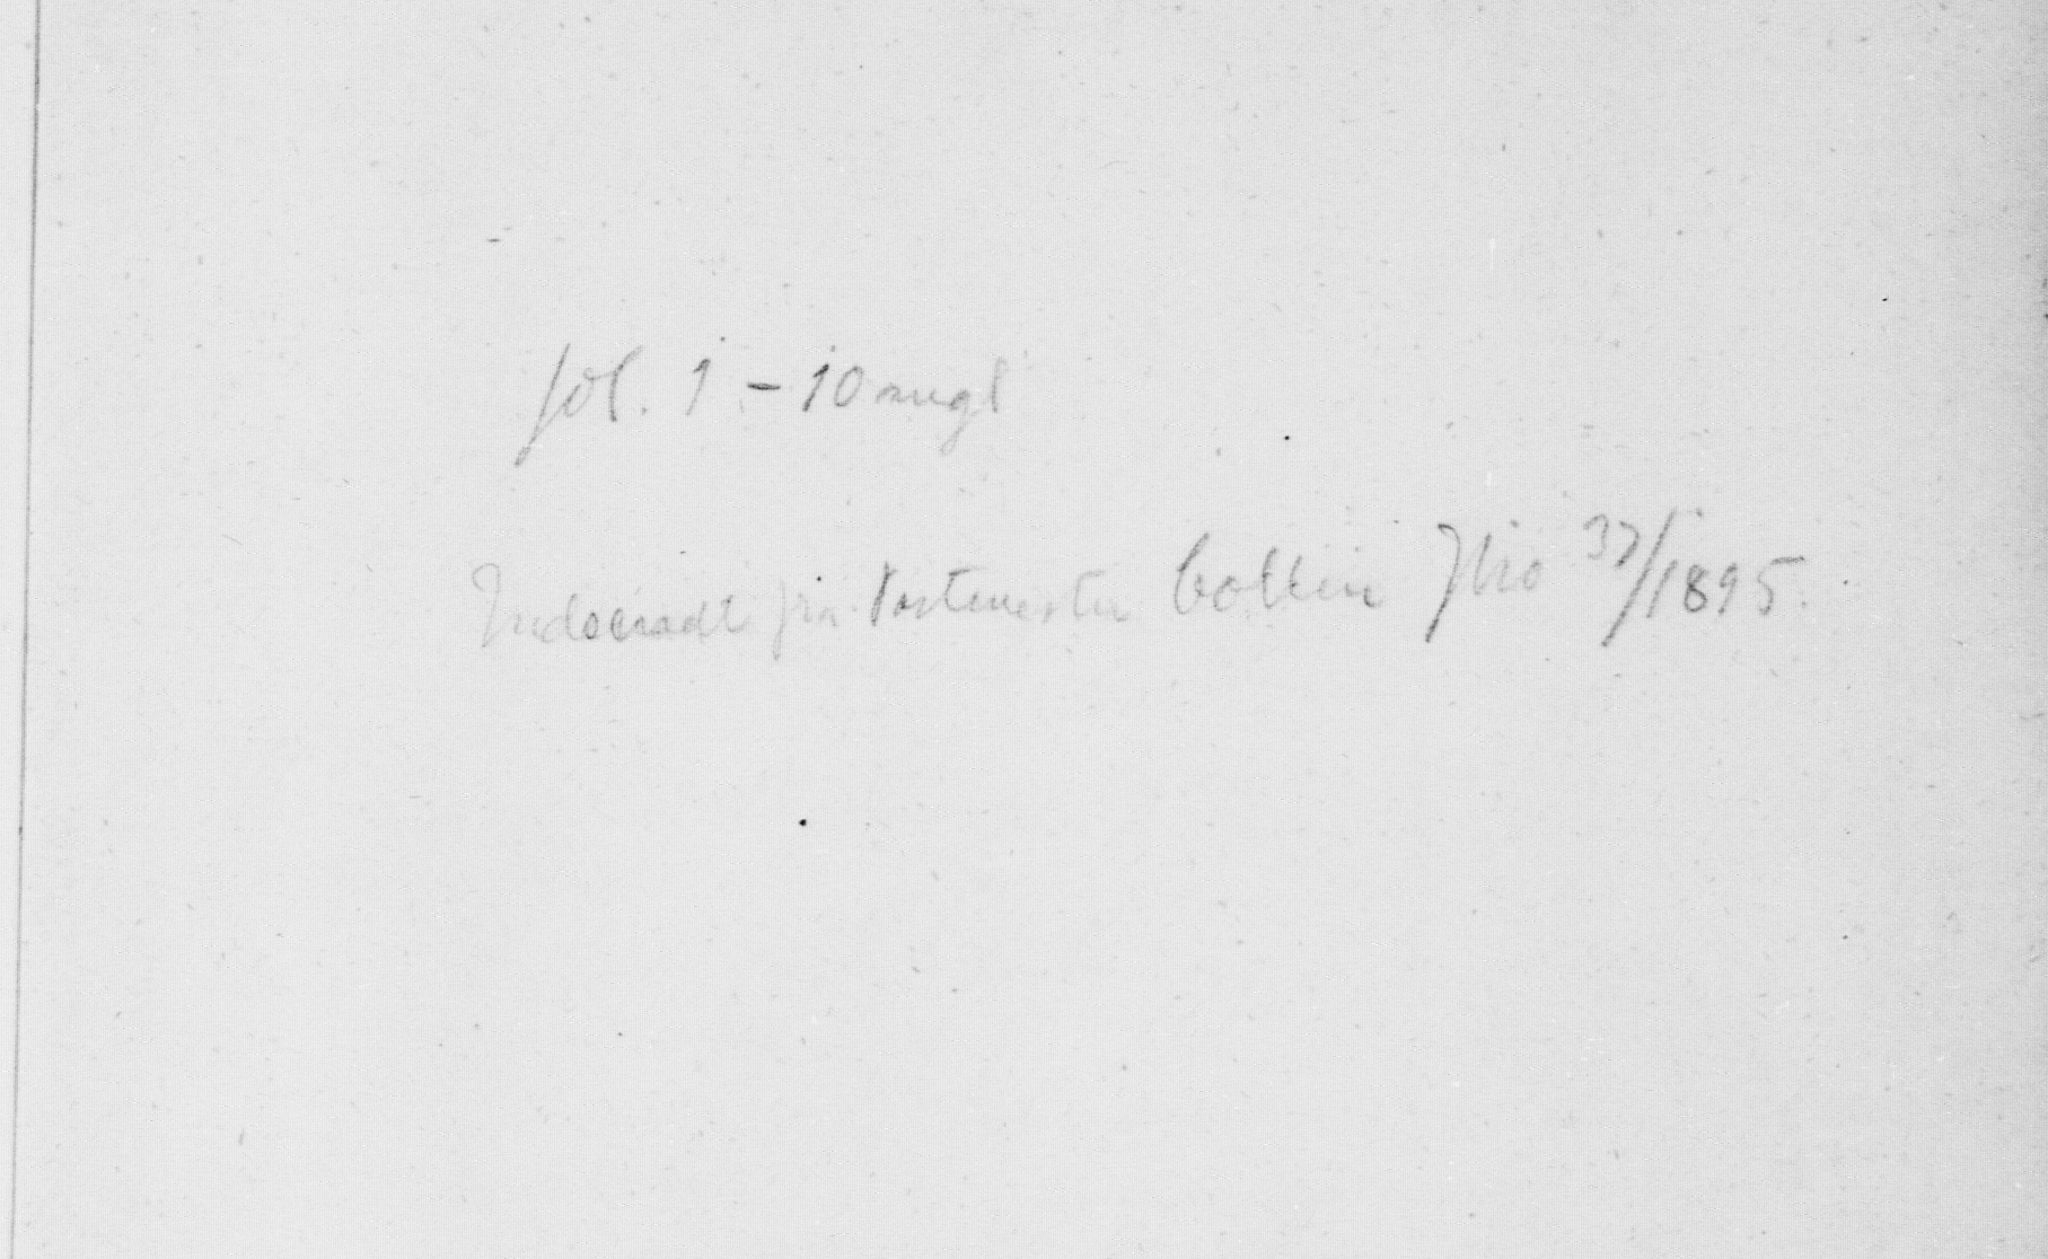 fol. 1 - 10 mgl
Indsendt fra Postmester Collin Jno 37/1895.